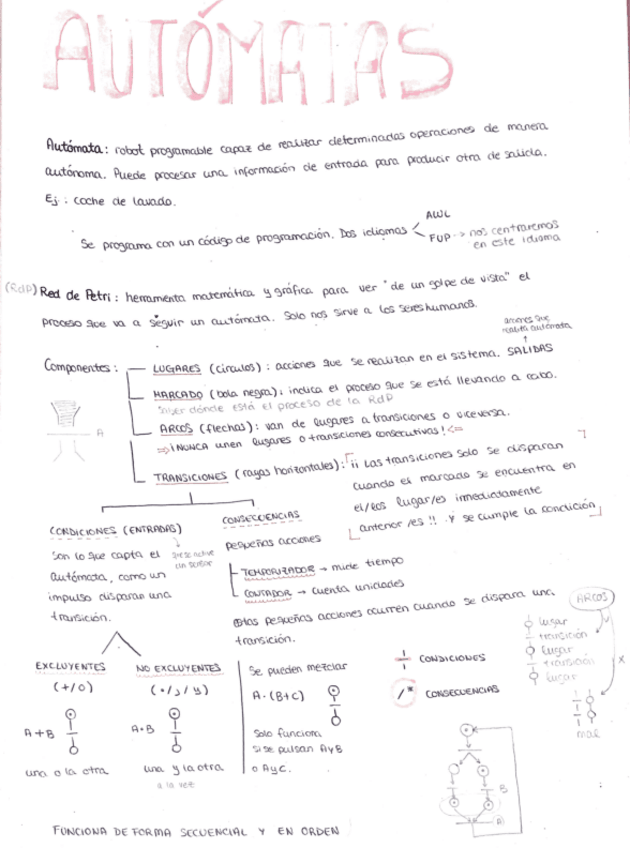 AUTÓMATAS
Autómata: robot programable capaz de realizar determinadas operaciones de manera
autónoma. Puede procesar una información de entrada para producir otra de salida.
Ej: coche de lavado.
Se programa con un código de programación. Dos idiomas
AWL
FUP --> nos centraremos
en este idioma
(RdP) Red de Petri: herramienta matemática y gráfica para ver "de un golpe de vista" el
proceso que va a seguir un autómata. Solo nos sirve a los seres humanos.
acciones que
realiza autómata
↑
Componentes: LUGARES (círculos): acciones que se realizan en el sistema. SALIDAS
MARCADO (bola negra): indica el proceso que se está llevando a cabo.
saber dónde está el proceso de la RdP
ARCOS (flechas): van de lugares a transiciones o viceversa.
⇒¡NUNCA unen lugares o transiciones consecutivas!⇐
A
TRANSICIONES (rayas horizontales): ¡¡ Las transiciones solo se disparan
cuando el marcado se encuentra en
el/los lugar/es inmediatamente
anterior/es !! . Y se cumple la condición
CONDICIONES (ENTRADAS)
Son lo que capta el
autómata, como un
impulso disparan una
transición.
un sensor
CONSECUENCIAS
pequeñas acciones
TEMPORIZADOR → mide tiempo
CONTADOR → cuenta unidades
Las pequeñas acciones ocurren cuando se dispara una
transición.
EXCLUYENTES
(+/o)
A+B
una o la otra
NO EXCLUYENTES
(·/,/y)
A·B
una y la otra
a la vez
Se pueden mezclar
A·(B+C)
Solo funciona
si se pulsan A y B
o A y C.
CONDICIONES
/* CONSECUENCIAS
ARCOS
lugar
transición
lugar
transición
lugar
X
mal
B
A
FUNCIONA DE FORMA SECUENCIAL Y EN ORDEN